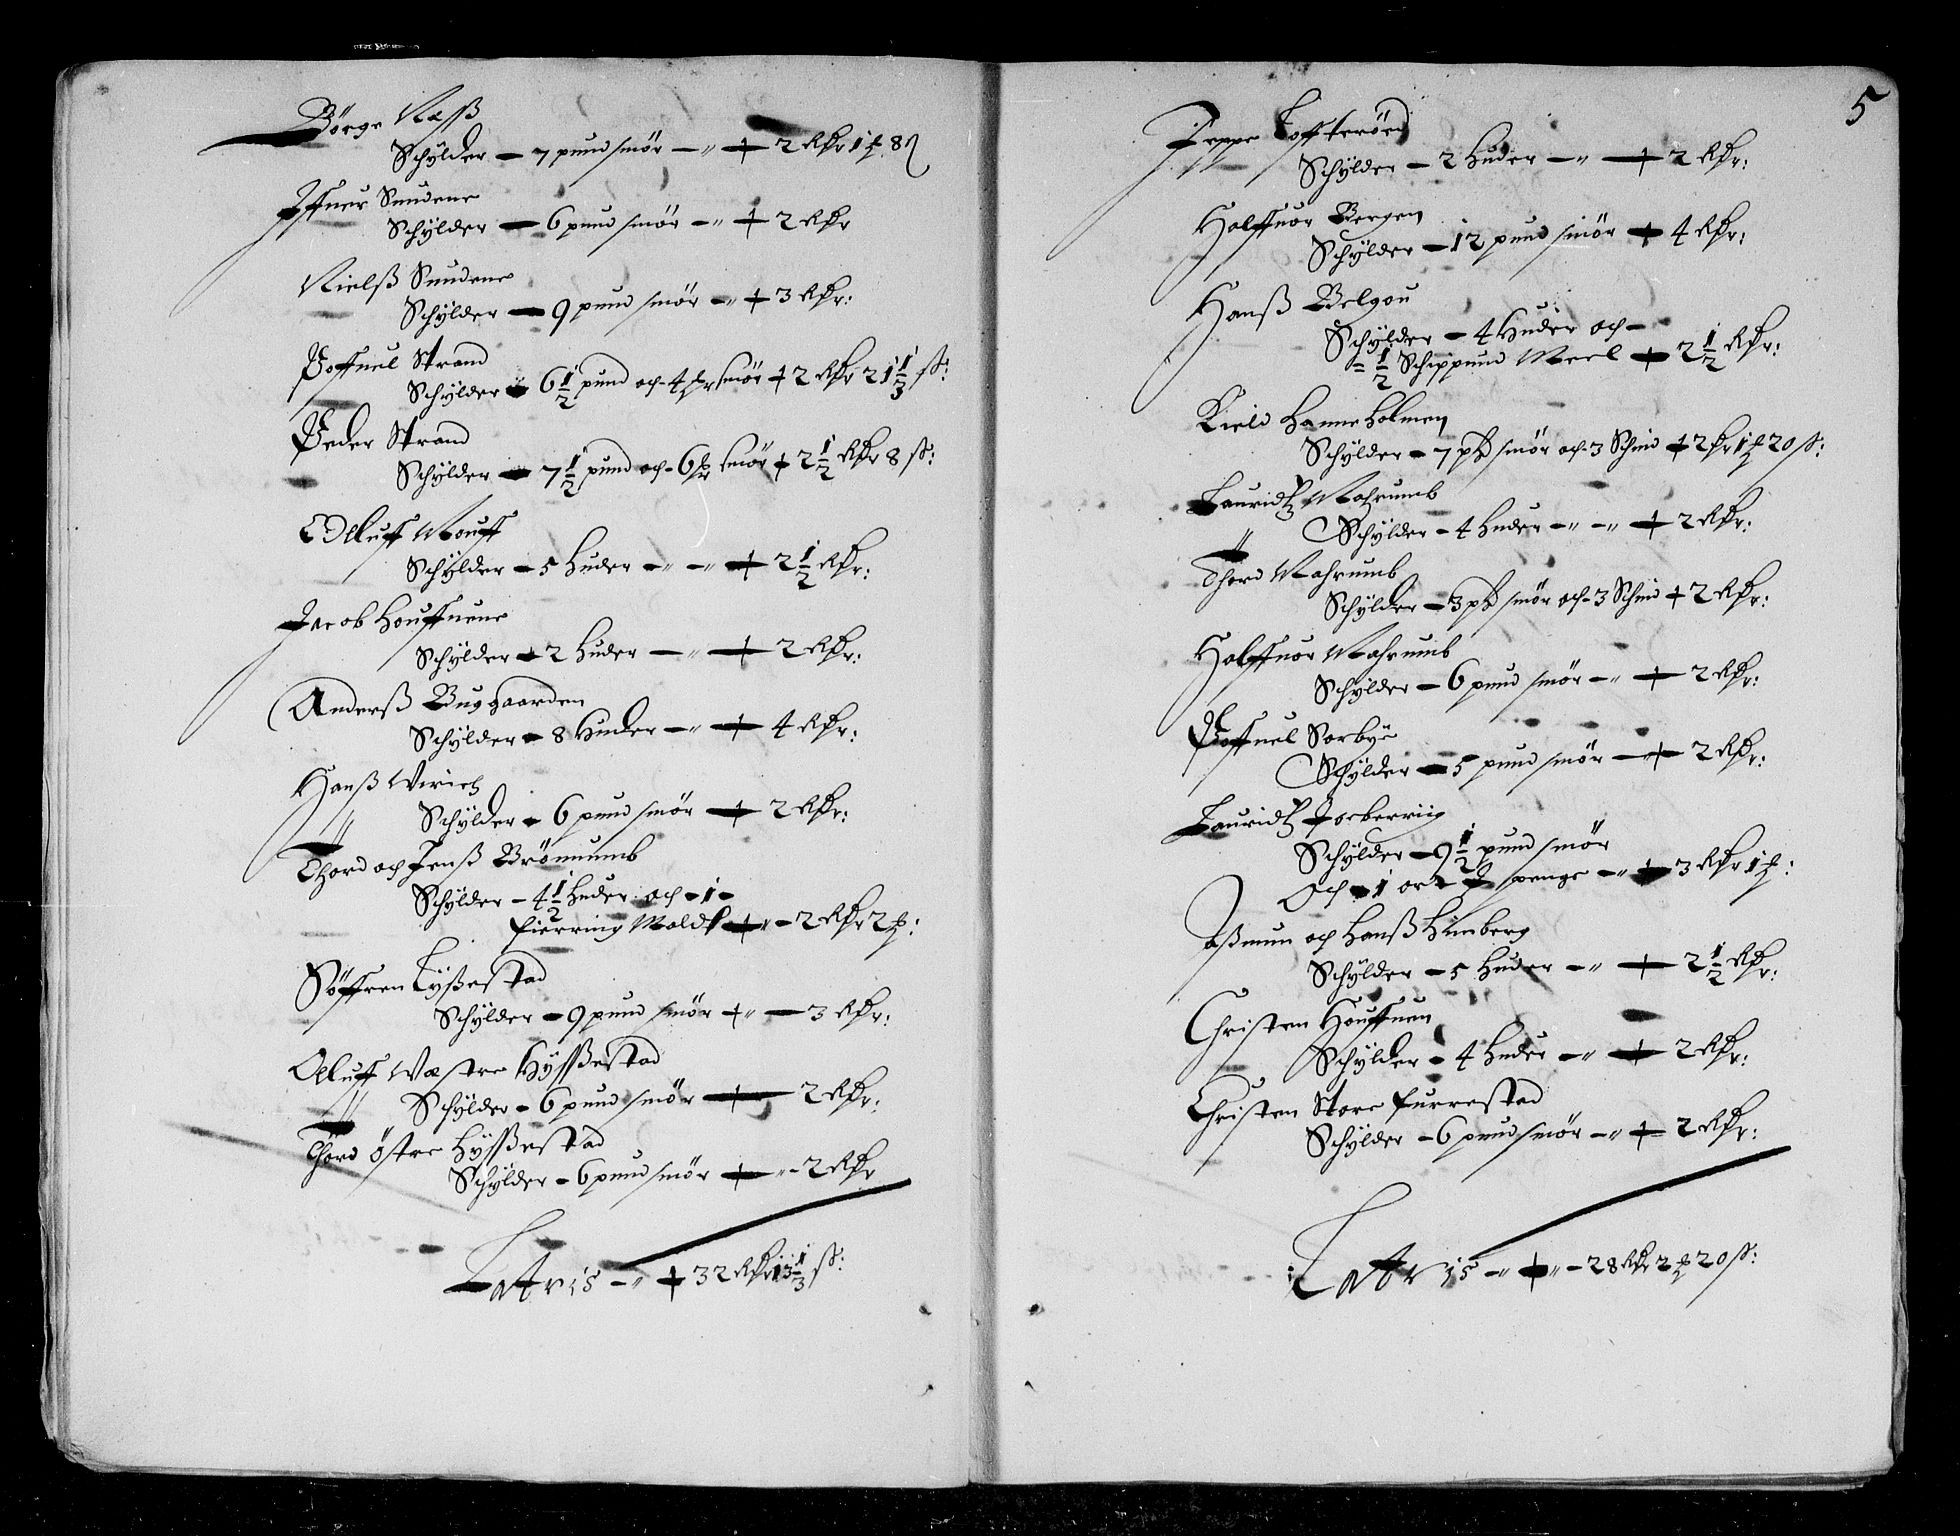 Börge Næß
Schÿlder – 7 pund smör – 2 Rdr 1 ꝑ 8 ß
Iffuer Sundene
Schÿlder – 6 pund smör – 2 Rdr
Nielß Sundene
Schÿlder – 9 pund smör – 3 Rdr:
Poffuel Strand
Schÿlder – 6 1/2 pund och 4 mr smör – 2 Rdr 21 1/3 ß:
Peder Strand
Schÿlder – 7 1/2 pund och 6 mr smör – 2 1/2 Rdr 8 ß:
Olluff Mouff
Schÿlder – 5 huder – 2 1/2 Rdr:
Jacob Houffuene
Schÿlder – 2 huder – 2 Rdr:
Anderß Buggaarden
Schÿlder – 8 Huder – 4 Rdr:
Hanß Wirich
Schÿlder – 6 pund smör – 2 Rdr:
Thord och Jenß Brömumb
Schÿlder – 4 1/2 huder och – 1 –
fierring Maldt – 2 Rdr 2 ꝑ:
Söffren Lÿßestad
Schÿlder – 9 pund smör – 3 Rdr:
Olluff Wæstre Hÿsßestad
Schÿlder – 6 pund smör – 2 Rdr:
Thord östre Hÿsßestad
Schÿlder – 6 pund smör – 2 Rdr
Latris – 32 Rdr 13 1/3 ß:
5
Jeppe Lofteröed
Schÿlder – 2 huder – 2 Rdr:
Halffuor Bergen
Schÿlder – 12 pund smör – 4 Rdr:
Hanß Belgou
Schÿlder – 4 Huder och –
= 1/2 Schippund Meel – 2 1/2 Rdr:
Kield Hanneholmen
Schÿlder – 7 pd smör och 3 Schind – 2 dr 1 ꝑ 20 ß:
Lauridtz Mahrumb
Schÿlder – 4 huder – 2 Rdr:
Thord Mahrumb
Schÿlder – 3 pd smör och 3 Schind – 2 Rdr:
Halffuor Mahrumb
Schÿlder – 6 pund smör – 2 Rdr:
Poffuel Sorbÿe
Schÿlder – 5 pund smör – 2 Rdr:
Lauridtz Jorberriig
Schÿlder – 9 1/2 pund smör
Och – 1 ort penge – 3 Rdr 1 ꝑ:
Aßmun och Hanß Himberg
Schÿlder – 5 huder – 2 1/2 Rdr:
Christen Houffuen
Schÿlder – 4 huder – 2 Rdr:
Christen Store furrestad
Schÿlder – 6 pund smör – 2 Rdr:
Latris – 28 Rdr 2 ꝑ 20 ß: